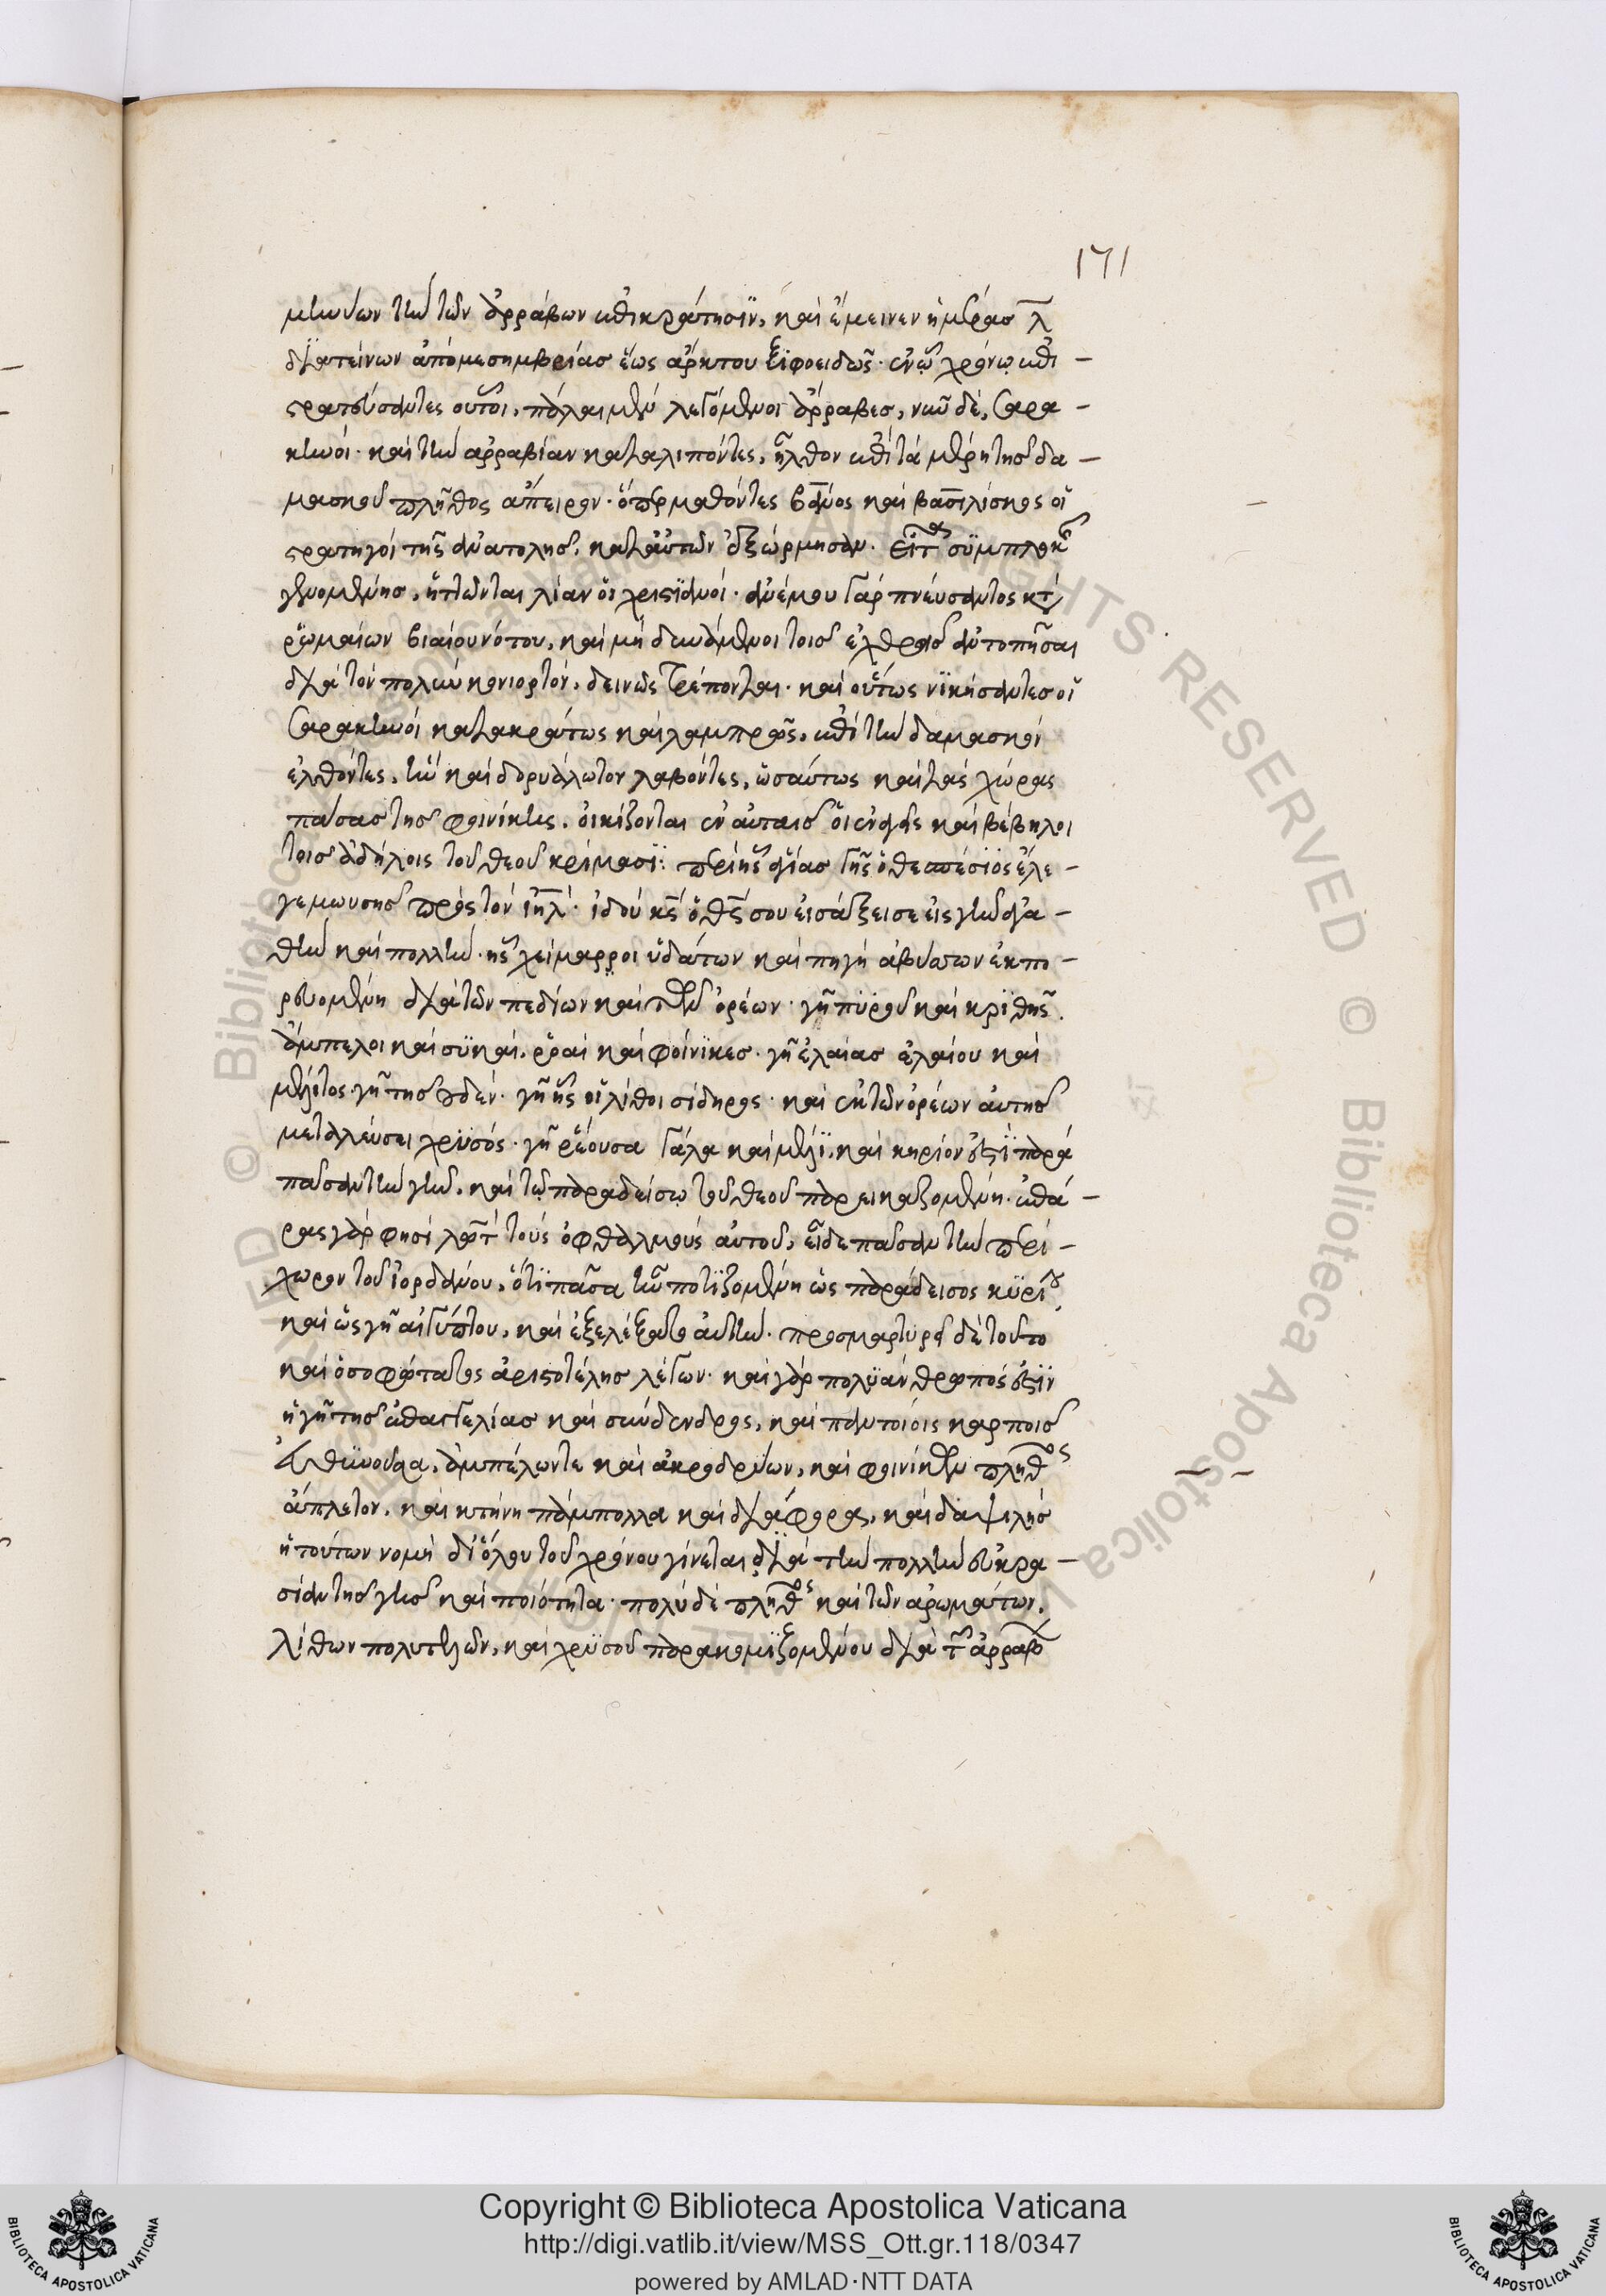 171
μηνύων τὴν τῶν ἀρράβων ἐπικράτησϊν, καὶ ἔμεινεν ἡμέρας λ
διατείνων ἀπὸ μεσημβρίας ἕως ἄρκτου ξιφοειδῶς· ἐν ᾧ χρόνῳ ἐπι-
στρατεύσαντες οὗτοι, πάλαι μὲν λεγόμενοι ἄρραβες, νῦν δὲ, σαρα-
κηνοί· καὶ τὴν ἀρραβίαν καταλιπόντες, ἦλθον ἐπὶ τὰ μέρη τῆς δα-
μασκοῦ πλῆθος ἄπειρον· ὅπερ μαθόντες καὶ βασιλίσκος οἱ
στρατηγοὶ τῆς ἀνατολῆς, κατ' αὐτῶν ἐξώρμησαν. εἶτα συμπλοκῆς
γενομένης, ἡττῶνται λίαν οἱ χριστϊανοί· ἀνέμου γὰρ πνεύσαντος κατὰ
ῥωμαίων βιαίου νότου, καὶ μὴ δυνάμενοι τοῖς ἐχθροῖς ἀντοπῆσαι
διὰ τὸν πολὺν κονιορτὸν, δεινῶς τρέπονται· καὶ οὕτως νϊκήσαντες οἱ
σαρακηνοὶ κατακράτως καὶ λαμπρῶς, ἐπὶ τὴν δαμασκὸν
ἐλθόντες, τὴν καὶ δορυάλωτον λαβόντες, ὡσαύτως καὶ τὰς χώρας
πάσας τῆς φοινίκης, οἰκίζονται ἐν αὐταῖς οἱ ἐναγεῖς καὶ βέβηλοι
τοῖς ἀδήλοις τοῦ θεοῦ κρίμασϊ: περὶ ἧς ἁγίας γῆς ὁ θεσπέσϊος ἔλε-
γε μωυσῆς πρὸς τὸν ιηλ· ἰδοὺ κς ὁ θς σου εἰσάξει σε εἰς γῆν ἀγα-
θὴν καὶ πολλὴν· ἧς χείμαρροι ὑδάτων καὶ πηγὴ ἀβύσσων ἐκπο-
ρευομένη διὰ τῶν πεδίων καὶ τῶν ὀρέων· γῆ πύρου καὶ κρϊθῆς.
ἄμπελοι καὶ συκαῖ, ῥοαὶ καὶ φοίνϊκες· γῆ ἐλαίας ἐλαίου καὶ
μέλιτος· γῆ τῆς ἐδέν· γῆ ἧς οἱ λίθοι σίδηρος· καὶ ἐκ τῶν ὀρέων αὐτῆς
μεταλλεύσει χρϋσός· γῆ ῥέουσα γάλα καὶ μέλϊ, καὶ κηρίον ἐστϊ παρὰ
πᾶσαν τὴν γῆν, καὶ τῷ παραδείσῳ τοῦ θεοῦ παρεικαζομένη· ἐπά-
ρας γάρ φησι λὼτ τοὺς ὀφθαλμοὺς αὐτοῦ, εἶδε πᾶσαν τὴν περί-
χωρον τοῦ ἰορδάνου, ὅτϊ πᾶσα ἦν ποτϊζομένη ὡς παράδεισος κϋρίου,
καὶ ὡς γῆ αἰγύπτου, καὶ ἐξελέξατο αὐτὴν· προσμαρτυρεῖ δὲ τοῦτο
καὶ ὁ σοφώτατος ἀριστοτέλης λέγων· καὶ γὰρ πολϋάνθρωπός ἐστϊν
ἡ γῆ τῆς ἐπαγγελίας καὶ σύνδενδρος, καὶ παντοίοις καρποῖς
εὐθϋνοῦσα, ἀμπέλων τε καὶ ἀκροδρύων, καὶ φοινίκων πλῆθος
ἄπλετον, καὶ κτήνη πάμπολλα καὶ διάφορα, καὶ δαψιλὴς
ἡ τούτων νομὴ δι' ὅλου τοῦ χρόνου γίνεται διὰ τὴν πολλὴν εὐκρα-
σίαν τῆς γῆς καὶ ποιότητα· πολὺ δὲ πλῆθος καὶ τῶν ἀρωμάτων.
λίθων πολυτελῶν, καὶ χρϋσοῦ παρακομϊζομένου διὰ τῶν ἀρράβων
Copyright © Biblioteca Apostolica Vaticana
http://digi.vatlib.it/view/MSS_Ott.gr.118/0347
powered by AMLAD·NTT DATA
BIBLIOTECA APOSTOLICA VATICANA
BIBLIOTECA APOSTOLICA VATICANA